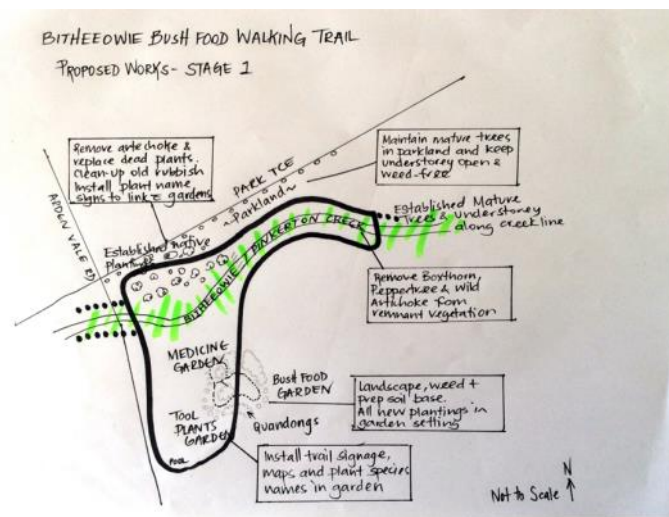 BITHEEOWIE BUSH FOOD WALKING TRAIL
PROPOSED WORKS- STAGE 1
Remove artechoke &
replace dead plants.
Clean-up old rubbish
Install plant name
signs to link gardens
Maintain mature trees
in parkland and keep
understorey open &
weed-free
PARK TCE
~Parkland~
ARDEN VALE RD
Established native
plantings
Established Mature
Trees & Understorey
along creekline
BITHEEOWIE / PINKERTON CREEK
Remove Boxthorn,
Peppertree & Wild
Artichoke from
remnant vegetation
MEDICINE
GARDEN
BUSH FOOD
GARDEN
Landscape, weed +
prep soil base.
All new plantings in
garden setting
TOOL
PLANTS
GARDEN
Quandongs
POOL
Install trail signage,
maps and plant species
names in garden
N
Not to Scale